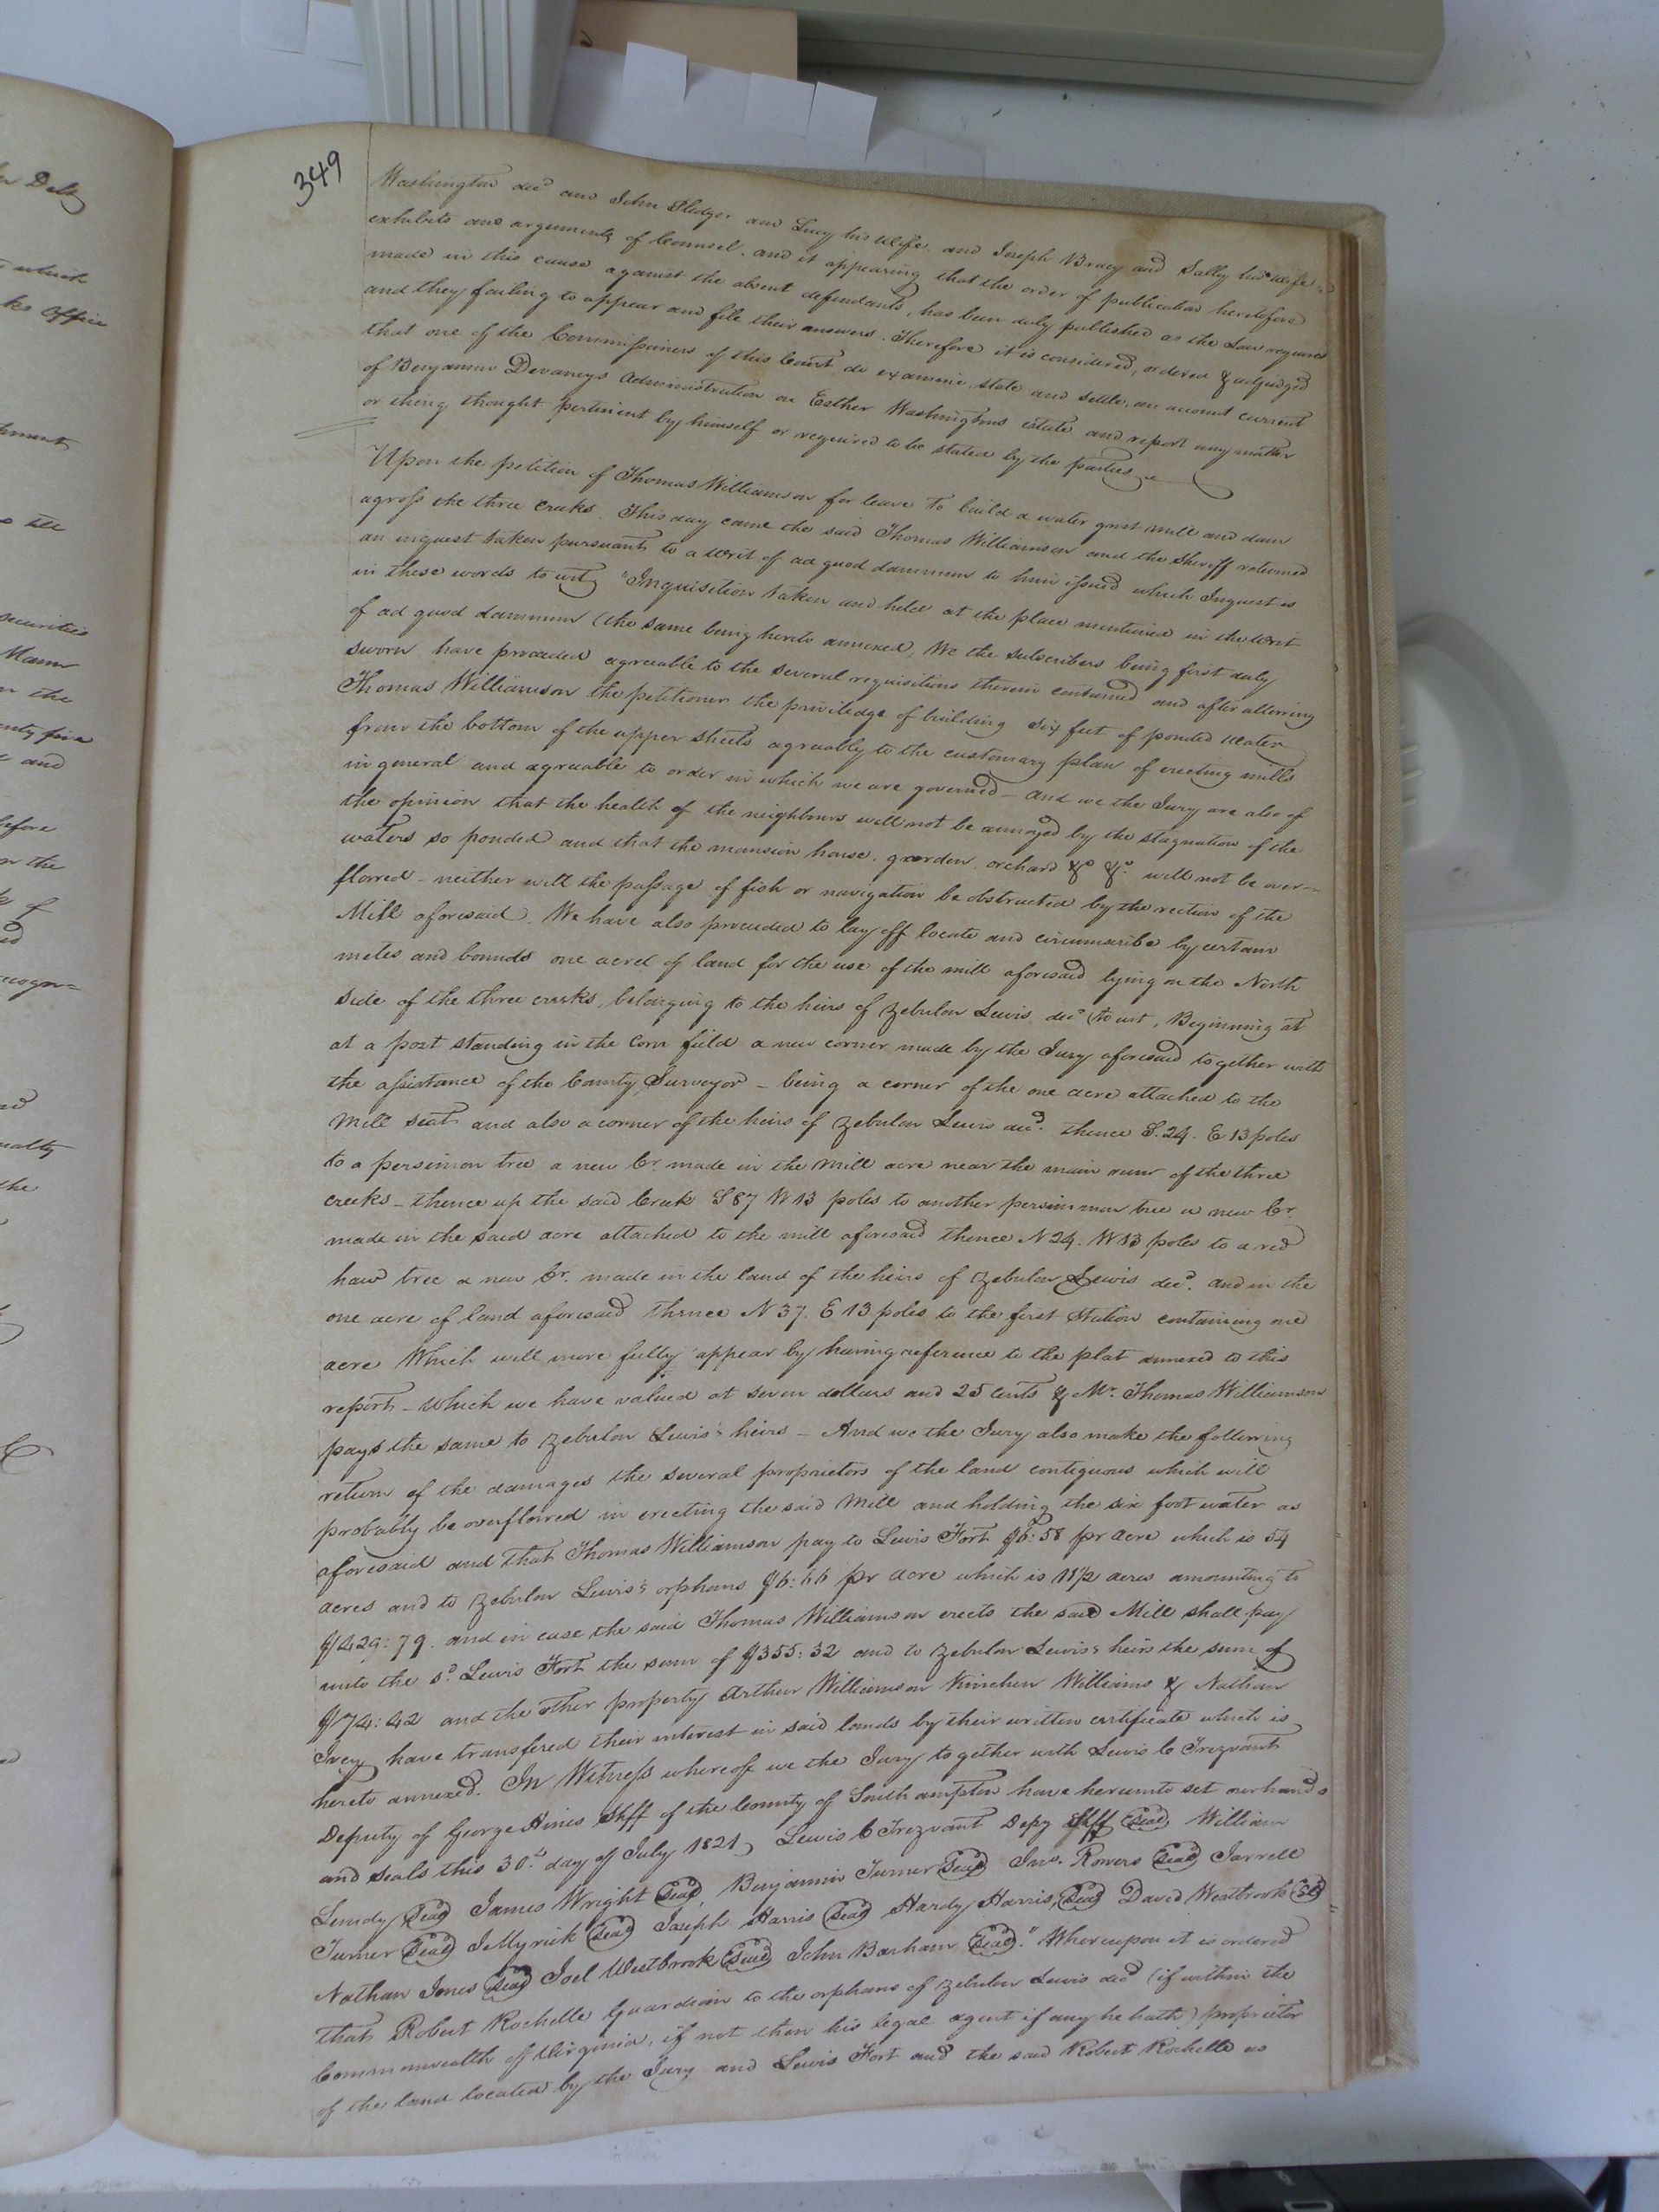 349
Washington decd and John Pledger and Lucy his Wife. and Joseph Bracy and Sally his Wife
exhibits and arguments of Counsel. and it appearing that the order of publication heretofore
made in this cause against the absent defendants, has been duly published as the Law requires
and they failing to appear and file their answers. Therefore it is considered, ordered & adjudged
that one of the Commissioners of this Court do examine, state and settle, an account current
of Benjamin Devaneys Administration on Esther Washingtons estate and report any matter
or thing thought pertinent by himself or required to be stated by the parties
Upon the petition of Thomas Williamson for leave to build a water grist mill and dam
across the three creeks. This day came the said Thomas Williamson and the Sheriff returned
an inquest taken pursuant to a writ of ad quod damnum to him issued which Inquest is
in these words to wit, "Inquisition taken and held at the place mentioned in the Writ
of ad quod damnum (the same being hereto annexed, We the subscribers being first duly
sworn have proceeded agreeable to the several requisitions therein contained and after allowing
Thomas Williamson the petitioner the priviledge of building six feet of ponded water
from the bottom of the upper sheets agreeably to the customary plan of erecting mills
in general and agreeable to order in which we are governed – and we the Jury are also of
the opinion that the health of the neighbours will not be annoyed by the stagnation of the
waters so ponded and that the mansion house. garden. orchard &c &c. will not be over-
flowed – neither will the passage of fish or navigation be obstructed by the rection of the
Mill aforesaid. We have also proceeded to lay off locate and circumscribe by certain
metes and bounds one acre of land for the use of the mill aforesaid lying on the North
side of the three creeks, belonging to the heirs of Zebulon Lewis decd (to wit, Beginning at
at a post standing in the corn field a new corner made by the Jury aforesaid together with
the assistance of the County Surveyor – being a corner of the one acre attached to the
Mill seat and also a corner of the heirs of Zebulon Lewis decd. thence S. 24. E 13 poles
to a persimon tree a new Cr. made in the Mill acre near the main run of the three
creeks – thence up the said Creek S 87 W 13 poles to another persimmon tree a new Cr.
made in the said acre attached to the mill aforesaid thence N 24. W 13 poles to a red
haw tree a new Cr. made in the land of the heirs of Zebulon Lewis decd. and in the
one acre of land aforesaid thence N 37. E 13 poles to the first Station containing one
acre Which will more fully appear by having reference to the plat annexed to this
report – which we have valued at seven dollars and 25 cents & Mr. Thomas Williamson
pays the same to Zebulon Lewis's heirs – And we the Jury also make the following
return of the damages the several proprietors of the land contiguous which will
probably be overflowed in erecting the said Mill and holding the six foot water as
aforesaid and that Thomas Williamson pay to Lewis Fort $6:58 pr acre which is 54
acres and to Zebulon Lewis's orphans $6:66 pr acre which is 11½ acres amounting to
$429:79. and in case the said Thomas Williamson erects the said Mill shall pay
unto the sd. Lewis Fort the sum of $355:32 and to Zebulon Lewis's heirs the sum of
$74:42 and the other property Arthur Williamson Kinchen Williams & Nathan
Ivey have transfered their interest in said lands by their written certificate which is
hereto annexed. In Witness whereof we the Jury together with Lewis C Trezvant
Deputy of George Hines Shff of the County of Southampton have hereunto set our hands
and seals this 30th day of July 1821, Lewis C Trezvant Depy Shff Seal William
Lundy Seal James Wright Seal, Benjamin Turner Seal Jno. Rowers Seal Jarrell
Turner Seal J Myrick Seal Joseph Harris Seal Hardy Harris, Seal David Westbrook Sl
Nathan Jones Seal Joel Westbrook Seal John Barham Seal." Whereupon it is ordered
that Robert Rochelle Guardian to the orphans of Zebulon Lewis decd (if within the
Commonwealth of Virginia, if not then his legal agent if any he hath) proprietor
of the land located by the Jury and Lewis Fort and the said Robert Rochelle as